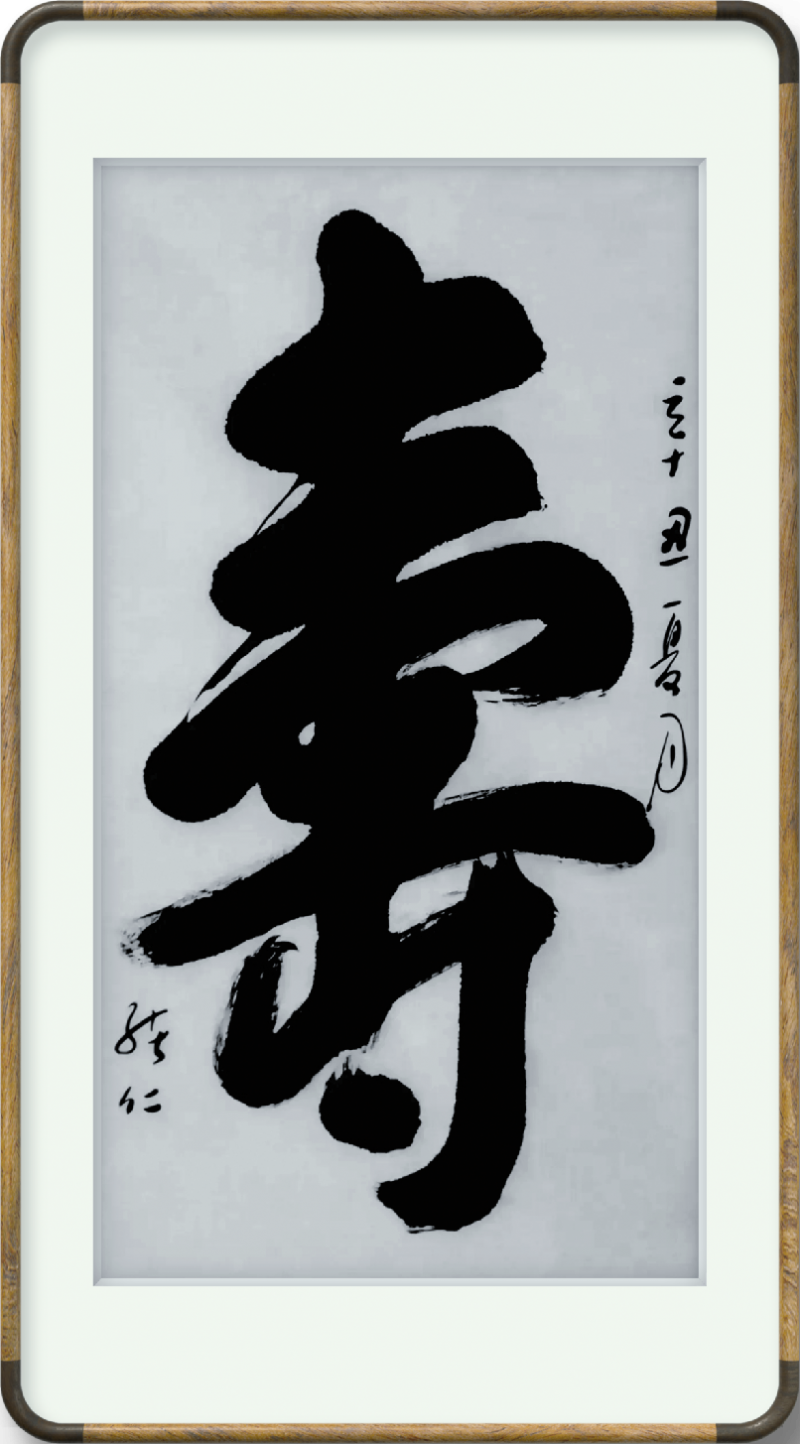 辛丑夏月
壽
仁